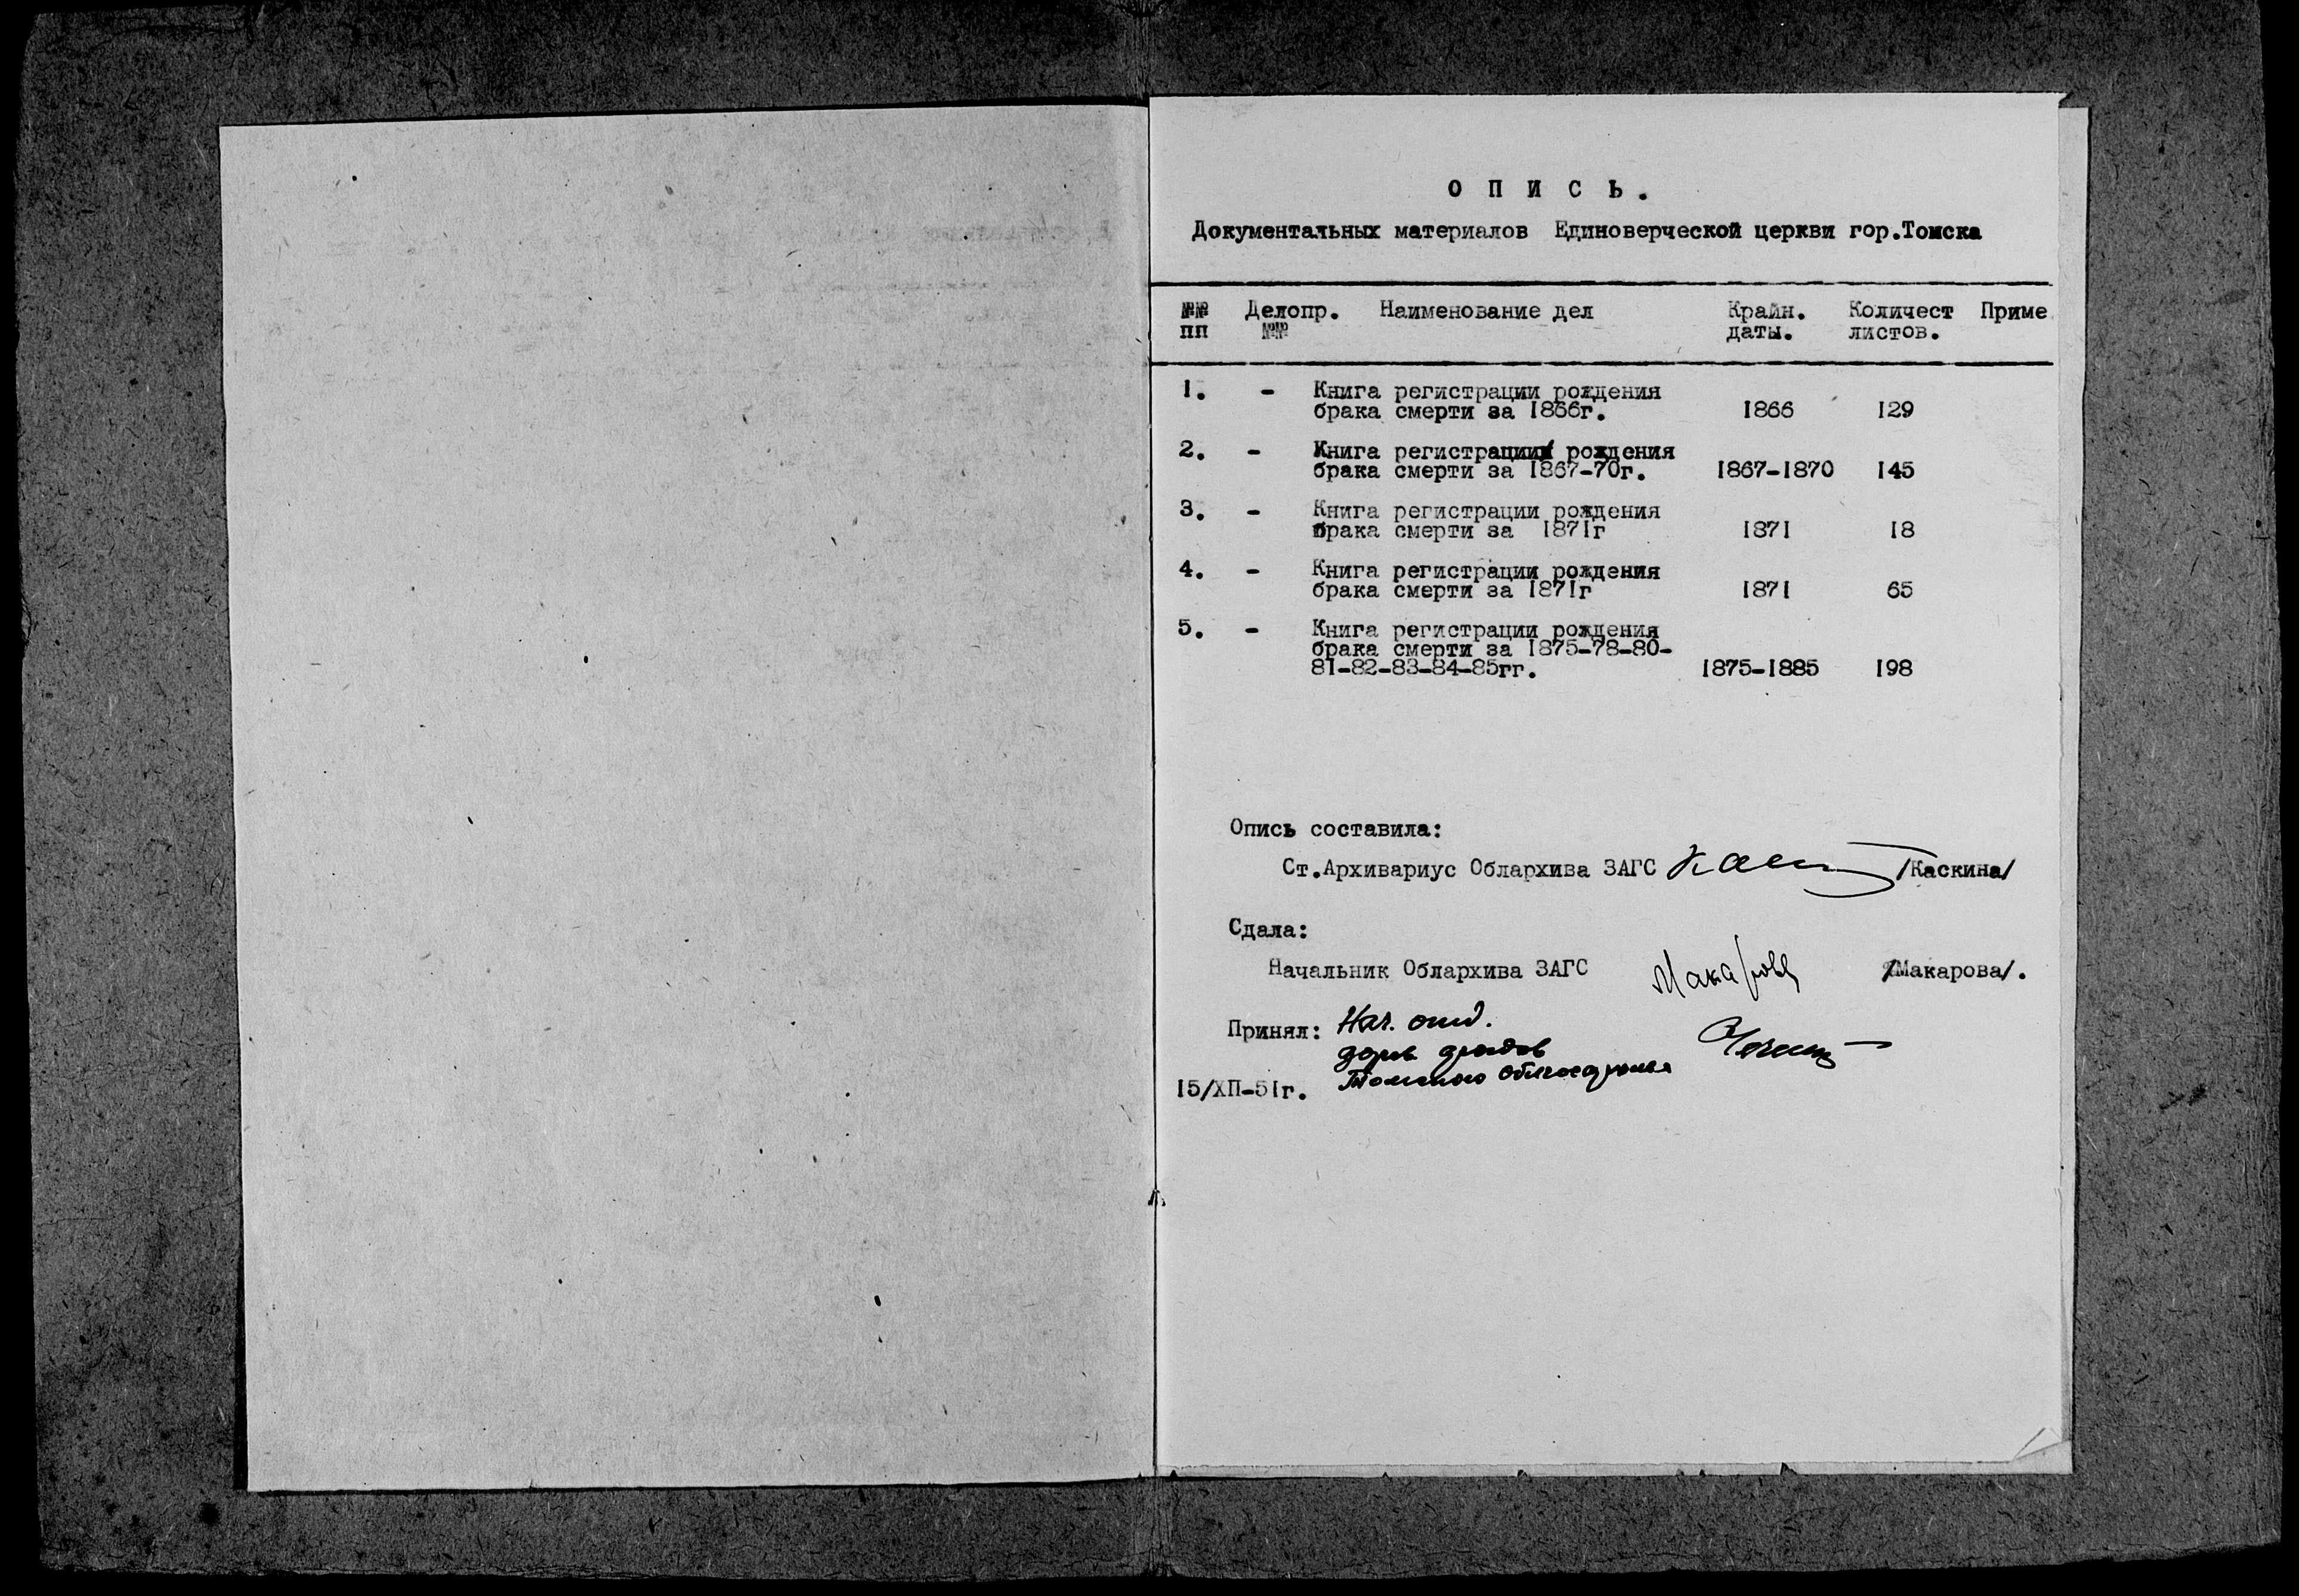 О П И С Ь .
Документальных материалов Единоверческой церкви гор.Томска
№№ Делопр. Наименование дел Крайн. Количест Приме
пп №№ даты. листов.
1. - Книга регистрации рождения
брака смерти за 1866г. 1866 129
2. - Книга регистрации рождения
брака смерти за 1867-70г. 1867-1870 145
3. - Книга регистрации рождения
брака смерти за 1871г 1871 18
4. - Книга регистрации рождения
брака смерти за 1871г 1871 65
5. - Книга регистрации рождения
брака смерти за 1875-78-80-
81-82-83-84-85гг. 1875-1885 198
Опись составила:
Ст.Архивариус Облархива ЗАГС /Каскина/
Сдала:
Начальник Облархива ЗАГС Макарова /Макарова/.
Принял: Нач. отд.
дорев. фондов
Томского облгосархива
15/ХП-51г.